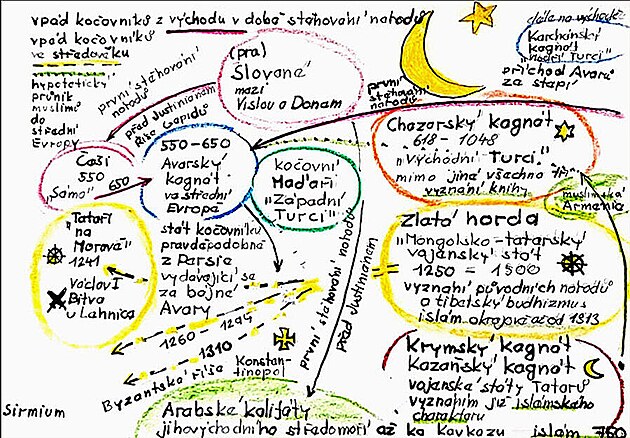 vpád kočovníků z východu v době stěhování národů
vpád kočovníků
ve středověku
hypotetický
průnik
muslimů
do
střední
Evropy
první stěhování
národů
před Justiniánem
Říše Gepidů
(pra)
Slované
mezi
Vislou a Donam
první
stěhování
národů
dále na východě:
Karchánský
kagnát
"modří Turci"
příchod Avarů
za stepí
Chazarský kagnát
618 - 1048
"Východní Turci"
mimo jiné všechno tři
vyznání knihy
muslimská
Armenia
Češi
550
"Samo"
650
550-650
Avarský
kagnát
ve střední
Evropě
kočovní
Maďaři
"Západní
Turci"
Tataři
na
Moravě
1241
Václav I
Bitva
u Lehnice
stát kočovníků
pravděpodobně
z Persie
vydávající se
za bojné
Avary
první stěhování národů
před Justiniánem
Zlatá horda
"Mongolsko-tatarský
vojenský stát
1250 = 1500
vyznání původních národů
a tibetský budhizmus
islám okrajově od 1313
1260 - 1294
1310
Byzantská říše
Konstan-
tinopol
Krymský kagnát
Kazaňský kagnát
vojenské státy Tatarů
vyznáním již islámského
charakteru
Sirmium
Arabské kalifáty
jihovýchodního středomoří až ka Kavkazu islám 750